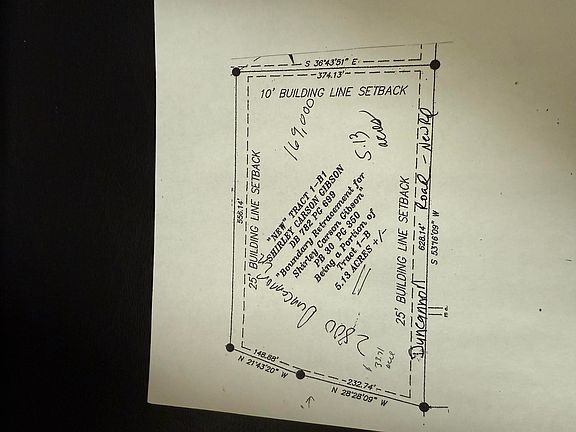 S 36°43'51" E
374.13'
10' BUILDING LINE SETBACK
169,000
5.13
acres
558.14'
25' BUILDING LINE SETBACK
"NEW" TRACT 1-B1
SHIRLEY CARSON GIBSON
DB 782 PG 699
"Boundary Retracement for
Shirley Carson Gibson"
PB 30 PG 350
Being a Portion of
Tract 1-B
5.13 ACRES +/-
2800 Duncannon
25' BUILDING LINE SETBACK
Duncannon Road - New Rd
628.14'
S 53°16'09" W
148.68'
N 21°43'20" W
232.74'
N 28°28'09" W
acre